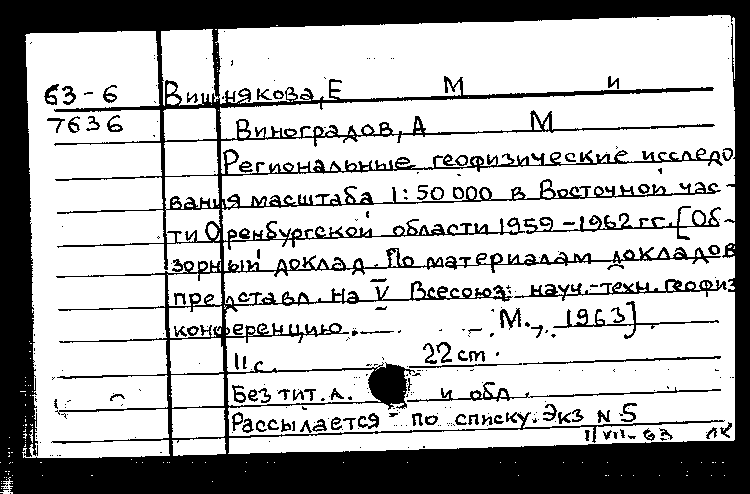 63-6 Вишнякова, Е М и
7636 Виноградов, А М
Региональные геофизические исследо
вания масштаба 1:50 000 в Восточной час-
ти Оренбургской области 1959-1962 гг. [Об-
зорный доклад. По материалам докладов
представл. на V Всесоюз. науч.-техн. геофиз
конференцию. М., 1963].
11 с. 22 cm.
Без тит. л. и обл.
Рассылается по списку. Экз N 5
1/VII-63